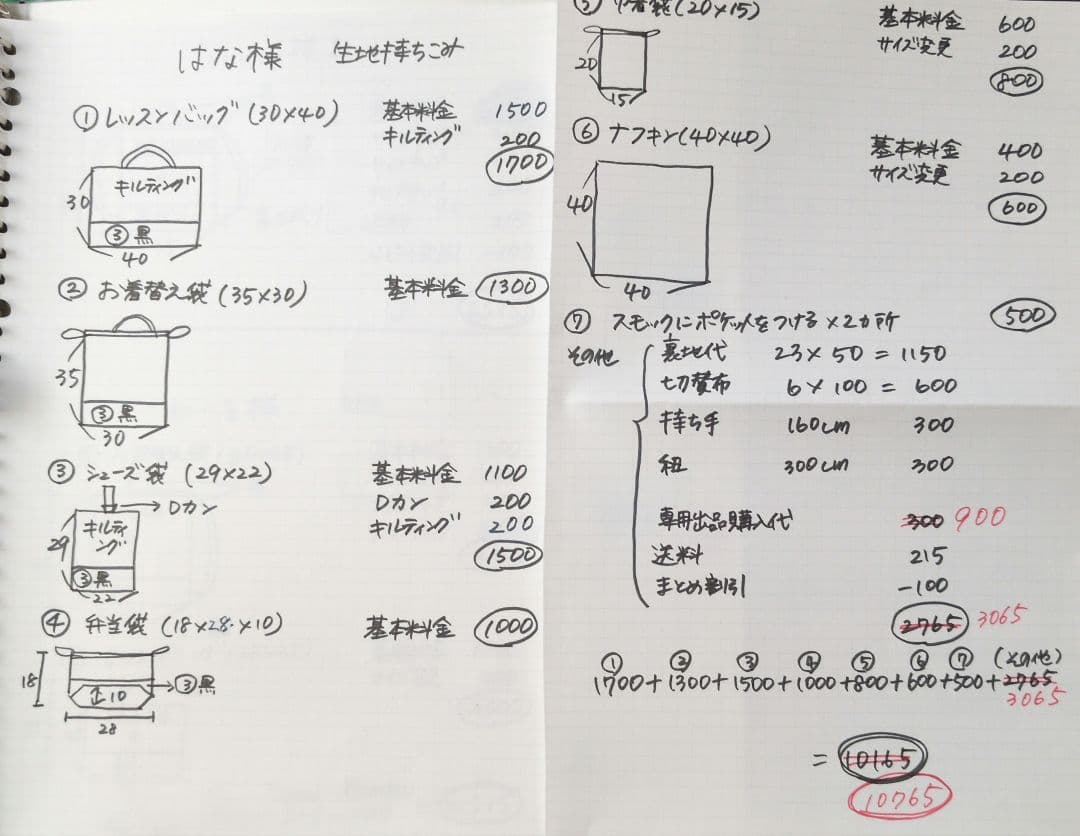 はな様 生地持ちこみ
① レッスンバッグ (30×40) 基本料金 1500
キルティング 200
1700
キルティング
30
③黒
40
② お着替え袋 (35×30) 基本料金 1300
35
③黒
30
③ シューズ袋 (29×22) 基本料金 1100
→Dカン Dカン 200
キルティング 200
1500
キルティ
ング
29
③黒
22
④ 弁当袋 (18×28×10) 基本料金 1000
18
10 →③黒
28
⑤ 巾着袋 (20×15) 基本料金 600
サイズ変更 200
800
20
15
⑥ ナフキン(40×40) 基本料金 400
サイズ変更 200
600
40
40
⑦ スモックにポケットをつける×2カ所 500
その他 裏地代 23×50=1150
切替布 6×100=600
持ち手 160cm 300
紐 300cm 300
専用出品購入代 300 900
送料 215
まとめ割引 -100
2765 3065
① ② ③ ④ ⑤ ⑥ ⑦ (その他)
1700+1300+1500+1000+800+600+500+2765
3065
= 10165
10765